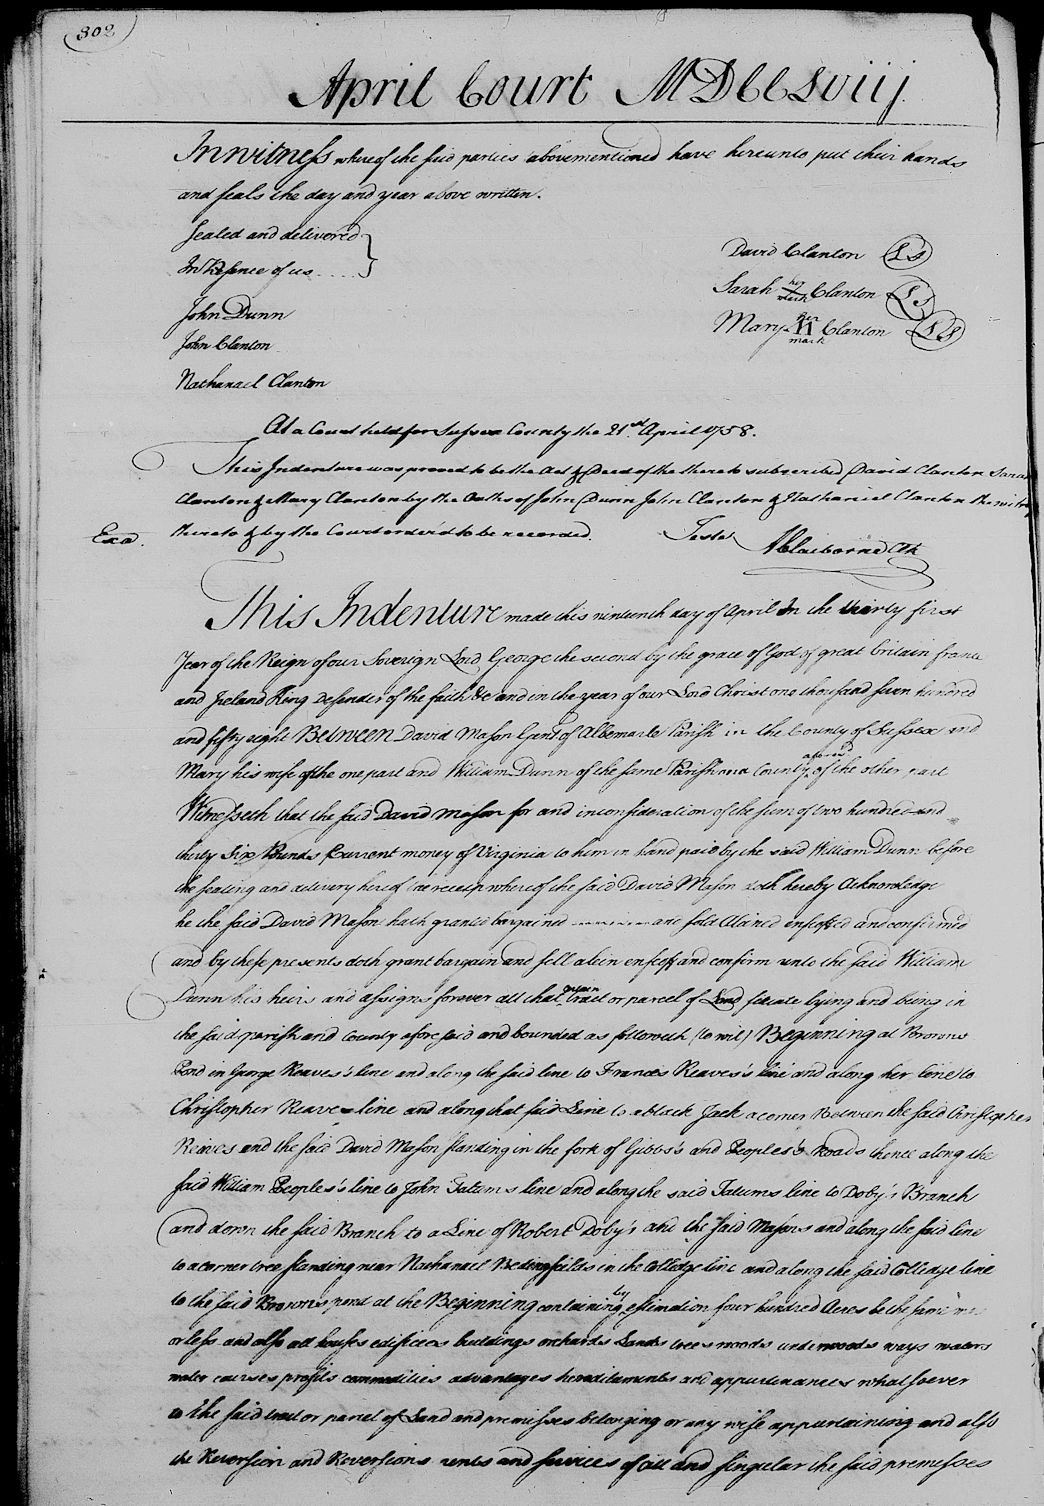 302
April Court MDCCLViij
In witness whereof the said parties abovementioned have hereunto put their hands
and seals the day and year above written.
Sealed and delivered
In Presence of us
David Clanton LS
Sarah her mark Clanton LS
Mary her mark Clanton LS
John Dunn
John Clanton
Nathanael Clanton
At a Court held for Sussex County the 21st April 1758.
This Indenture was proved to be the Act & Deed of the thereto subscribed David Clanton Sarah
Clanton & Mary Clanton by the Oaths of John Dunn John Clanton & Nathaniel Clanton the
thereto & by the Court order'd to be recorded.
Exd.
Teste
AClaiborne Clk
This Indenture made this ninteenth day of April In the thirty first
Year of the Reign of our Soverign Lord George the second by the grace of God of great britain france
and Ireland King Defender of the faith &c and in the year of our Lord Christ one thousand seven hundred
and fifty eight Between David Mason Gent of Albemarle Parish in the County of Sussex and
Mary his wife of the one part and William Dunn of the same Parish and County aforesd of the other part
Witnesseth that the said David Mason for and in consideration of the sum of two hundred and
thirty Six Pounds Current money of Virginia to him in hand paid by the said William Dunn before
the sealing and delivery hereof the receip whereof the said David Mason doth hereby Acknowledge
he the said David Mason hath granted bargained and sold Aliened enfeoffed and confirmed
and by these presents doth grant bargain and sell alien enfeoff and confirm unto the said William
Dunn his heirs and assigns forever all that certain tract or parcel of Land situate lying and being in
the said parish and County aforesaid and bounded as followeth (to wit) Beginning at Browns
Pond in George Reaves's line and along the said line to Frances Reaves's line and along her line to
Christopher Reaves line and along that said Line to a black Jack a corner Between the said Christopher
Reaves and the said David Mason standing in the fork of Gibbs's and Peoples's Roads thence along the
said William Peoples's line to John Tatums line and along the said Tatums line to Doby's Branch
and down the said Branch to a Line of Robert Doby's and the said Masons and along the said line
to a corner tree standing near Nathanael Bedingfeilds in the Colledge line and along the said Colledge line
to the said Browns pond at the Beginning containing by estimation four hundred Acres be the same
or less and also all houses edifices buildings orchards Lands trees woods underwoods ways waters
water courses profits commodities advantages hereditaments and appurtenances whatsoever
to the said tract or parcel of Land and premisses belonging or any wise appurtaining and also
the Reversion and Reversions rents and services of all and singular the said premesses